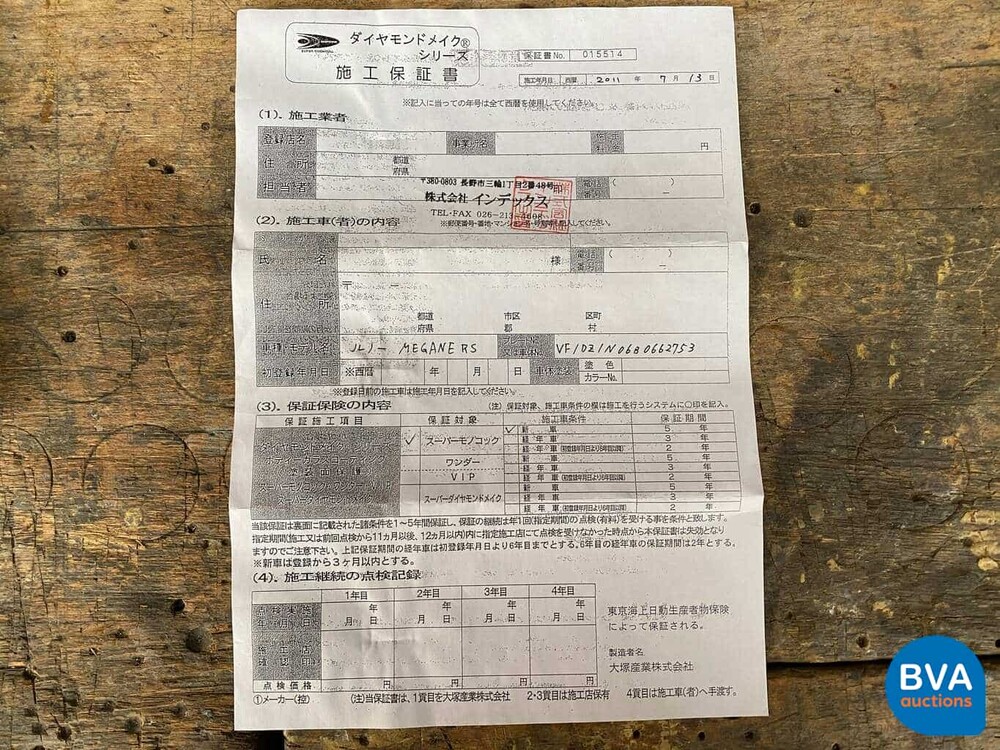 ダイヤモンドメイク®
シリーズ
施工保証書
保証書No. 015514
施工年月日 西暦 2011 年 7 月 13 日
※記入に当っての年号は全て西暦を使用してください。
(1). 施工業者
登録店名 事業所名 施工料金 円
住所 都道府県
〒380-0803 長野市三輪1丁目2番48号 印
担当者 電話番号 ( ) −
株式会社 インデックス
TEL・FAX 026-213-4608
(2). 施工車(者)の内容
※郵便番号・番地・マンション名・号
入してください。
氏名 様 電話番号 ( ) −
〒 −
住所
都道府県 市区郡 区町村
車種(モデル名) ルノー MEGANE RS フレームNo.又は車体No. VF1DZ1N0680662753
初登録年月日 ※西暦 年 月 日 車体塗装 塗色
カラーNo.
※登録日前の施工車は施工年月日を記入してください。
(3). 保証保険の内容 (注) 保証対象、施工車条件の欄は施工を行うシステムに○印を記入。
保証施工項目 保証対象 施工車条件 保証期間
✓ スーパーモノコック ✓ 新車 5 年
経年車 3 年
経年車(初登録年月日より6年目以降) 2 年
ワンダー
VIP
新車 5 年
経年車 3 年
経年車(初登録年月日より6年目以降) 2 年
スーパーダイヤモンドメイク
新車 5 年
経年車 3 年
経年車(初登録年月日より6年目以降) 2 年
当該保証は裏面に記載された諸条件を1～5年間保証し、保証の継続は年1回(指定期間)の点検(有料)を受ける事を条件と致します。
指定期間(施工又は前回点検から11カ月以後、12カ月以内)内に指定施工店にて点検を受けなかった時点から本保証書は失効となり
ますのでご注意下さい。上記保証期間の経年車は初登録年月日より6年目までとする。6年目の経年車の保証期間は2年とする。
※新車は登録から3ヶ月以内とする。
(4). 施工継続の点検記録
1年目 2年目 3年目 4年目
点検実施年月日 年月日 年月日 年月日 年月日
施工店確認印
点検価格 円 円 円 円
東京海上日動生産者物保険
によって保証される。
製造者名
大塚産業株式会社
①メーカー(控) (注)当保証書は、1頁目を大塚産業株式会社 2・3頁目は施工店保有 4頁目は施工車(者)へ手渡す。
BVA
auctions